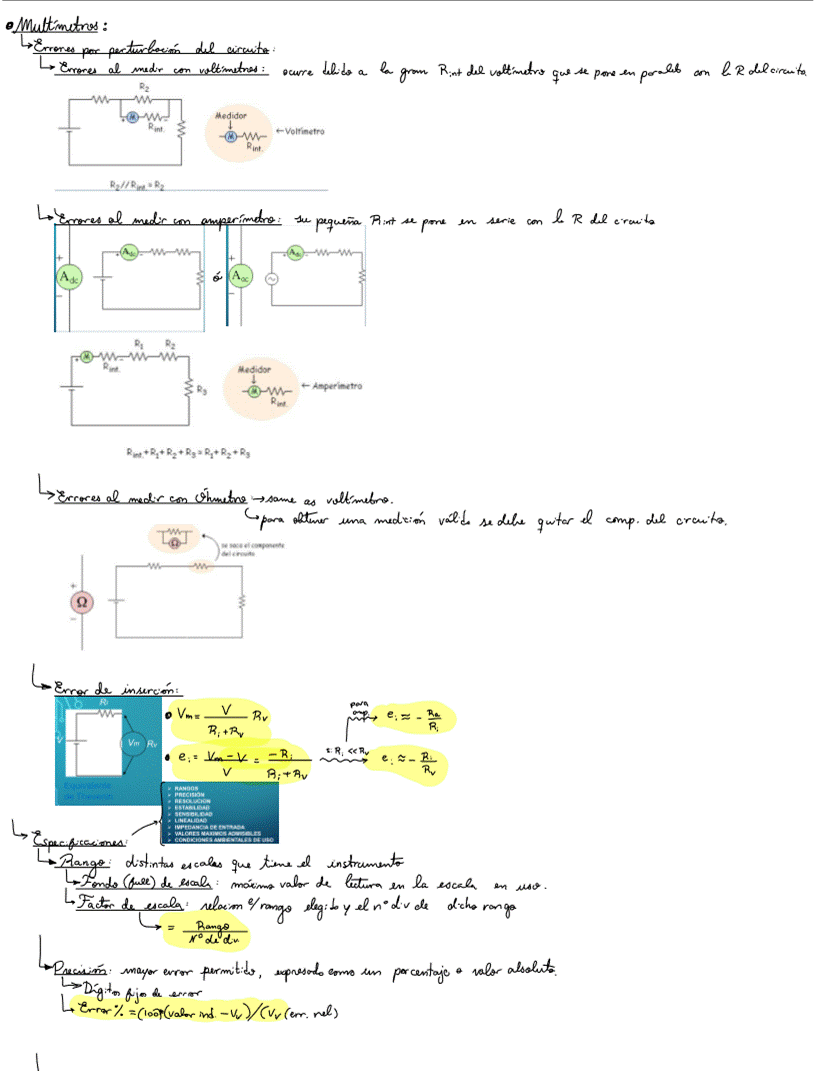 • Multímetros:
↳ Errores por perturbación del circuito:
↳ Errores al medir con voltímetros: ocurre debido a la gran Rint del voltímetro que se pone en paralelo con la R del circuito.
R2
M
Rint.
Medidor
M
Rint.
← Voltímetro
R2//Rint = R2
↳ Errores al medir con amperímetro: su pequeña Rint se pone en serie con la R del circuito
+
Adc
-
Adc
ó
+
Aac
-
Aac
R1 R2
M
Rint.
R3
Medidor
M
Rint.
← Amperímetro
Rint.+R1+R2+R3=R1+R2+R3
↳ Errores al medir con Óhmetro → same as voltímetro.
↳ para obtener una medición válida se debe quitar el comp. del circuito.
Ω
se saca el componente
del circuito
+
Ω
-
↳ Error de inserción:
Ri
V
Vm Rv
Equivalente
de Thevenin
• Vm = V / (Ri + Rv) Rv
• ei = (Vm - V) / V = -Ri / (Ri + Rv)
si Ri << Rv
ei ≈ - Ri / Rv
para
amp.
ei ≈ - Ra / Ri
➢ RANGOS
➢ PRECISIÓN
➢ RESOLUCION
➢ ESTABILIDAD
➢ SENSIBILIDAD
➢ LINEALIDAD
➢ IMPEDANCIA DE ENTRADA
➢ VALORES MAXIMOS ADMISIBLES
➢ CONDICIONES AMBIENTALES DE USO
↳ Especificaciones:
↳ Rango: distintas escalas que tiene el instrumento
↳ Fondo (full) de escala: máximo valor de lectura en la escala en uso.
↳ Factor de escala: relacion e/ rango elegido y el n° div de dicho rango
= Rango / N° de div.
↳ Precisión: mayor error permitido, expresado como un porcentaje o valor absoluto.
↳ Dígitos fijos de error
↳ Error % = (100*(valor ind. - Vv)/(Vv (err. rel)